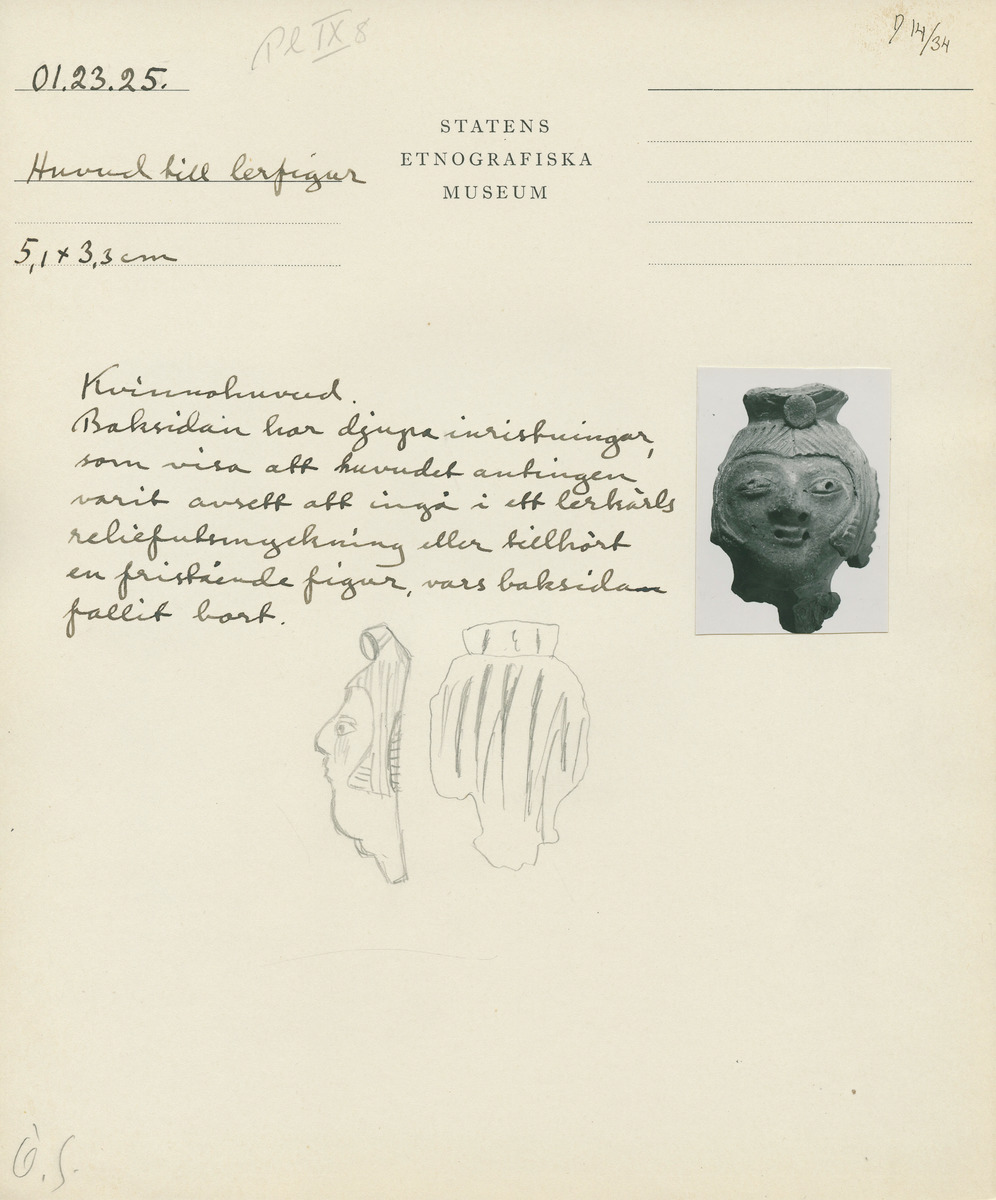 Pl IX 8
7 14/34
01.23.25.
STATENS
ETNOGRAFISKA
MUSEUM
Huvud till lerfigur
5,1 x 3,3 cm
Kvinnohuvud.
Baksidan har djupa inristningar,
som visa att huvudet antingen
varit avsett att ingå i ett lerkärls
reliefutsmyckning eller tillhört
en fristående figur, vars baksida
fallit bort.
Ö.S.